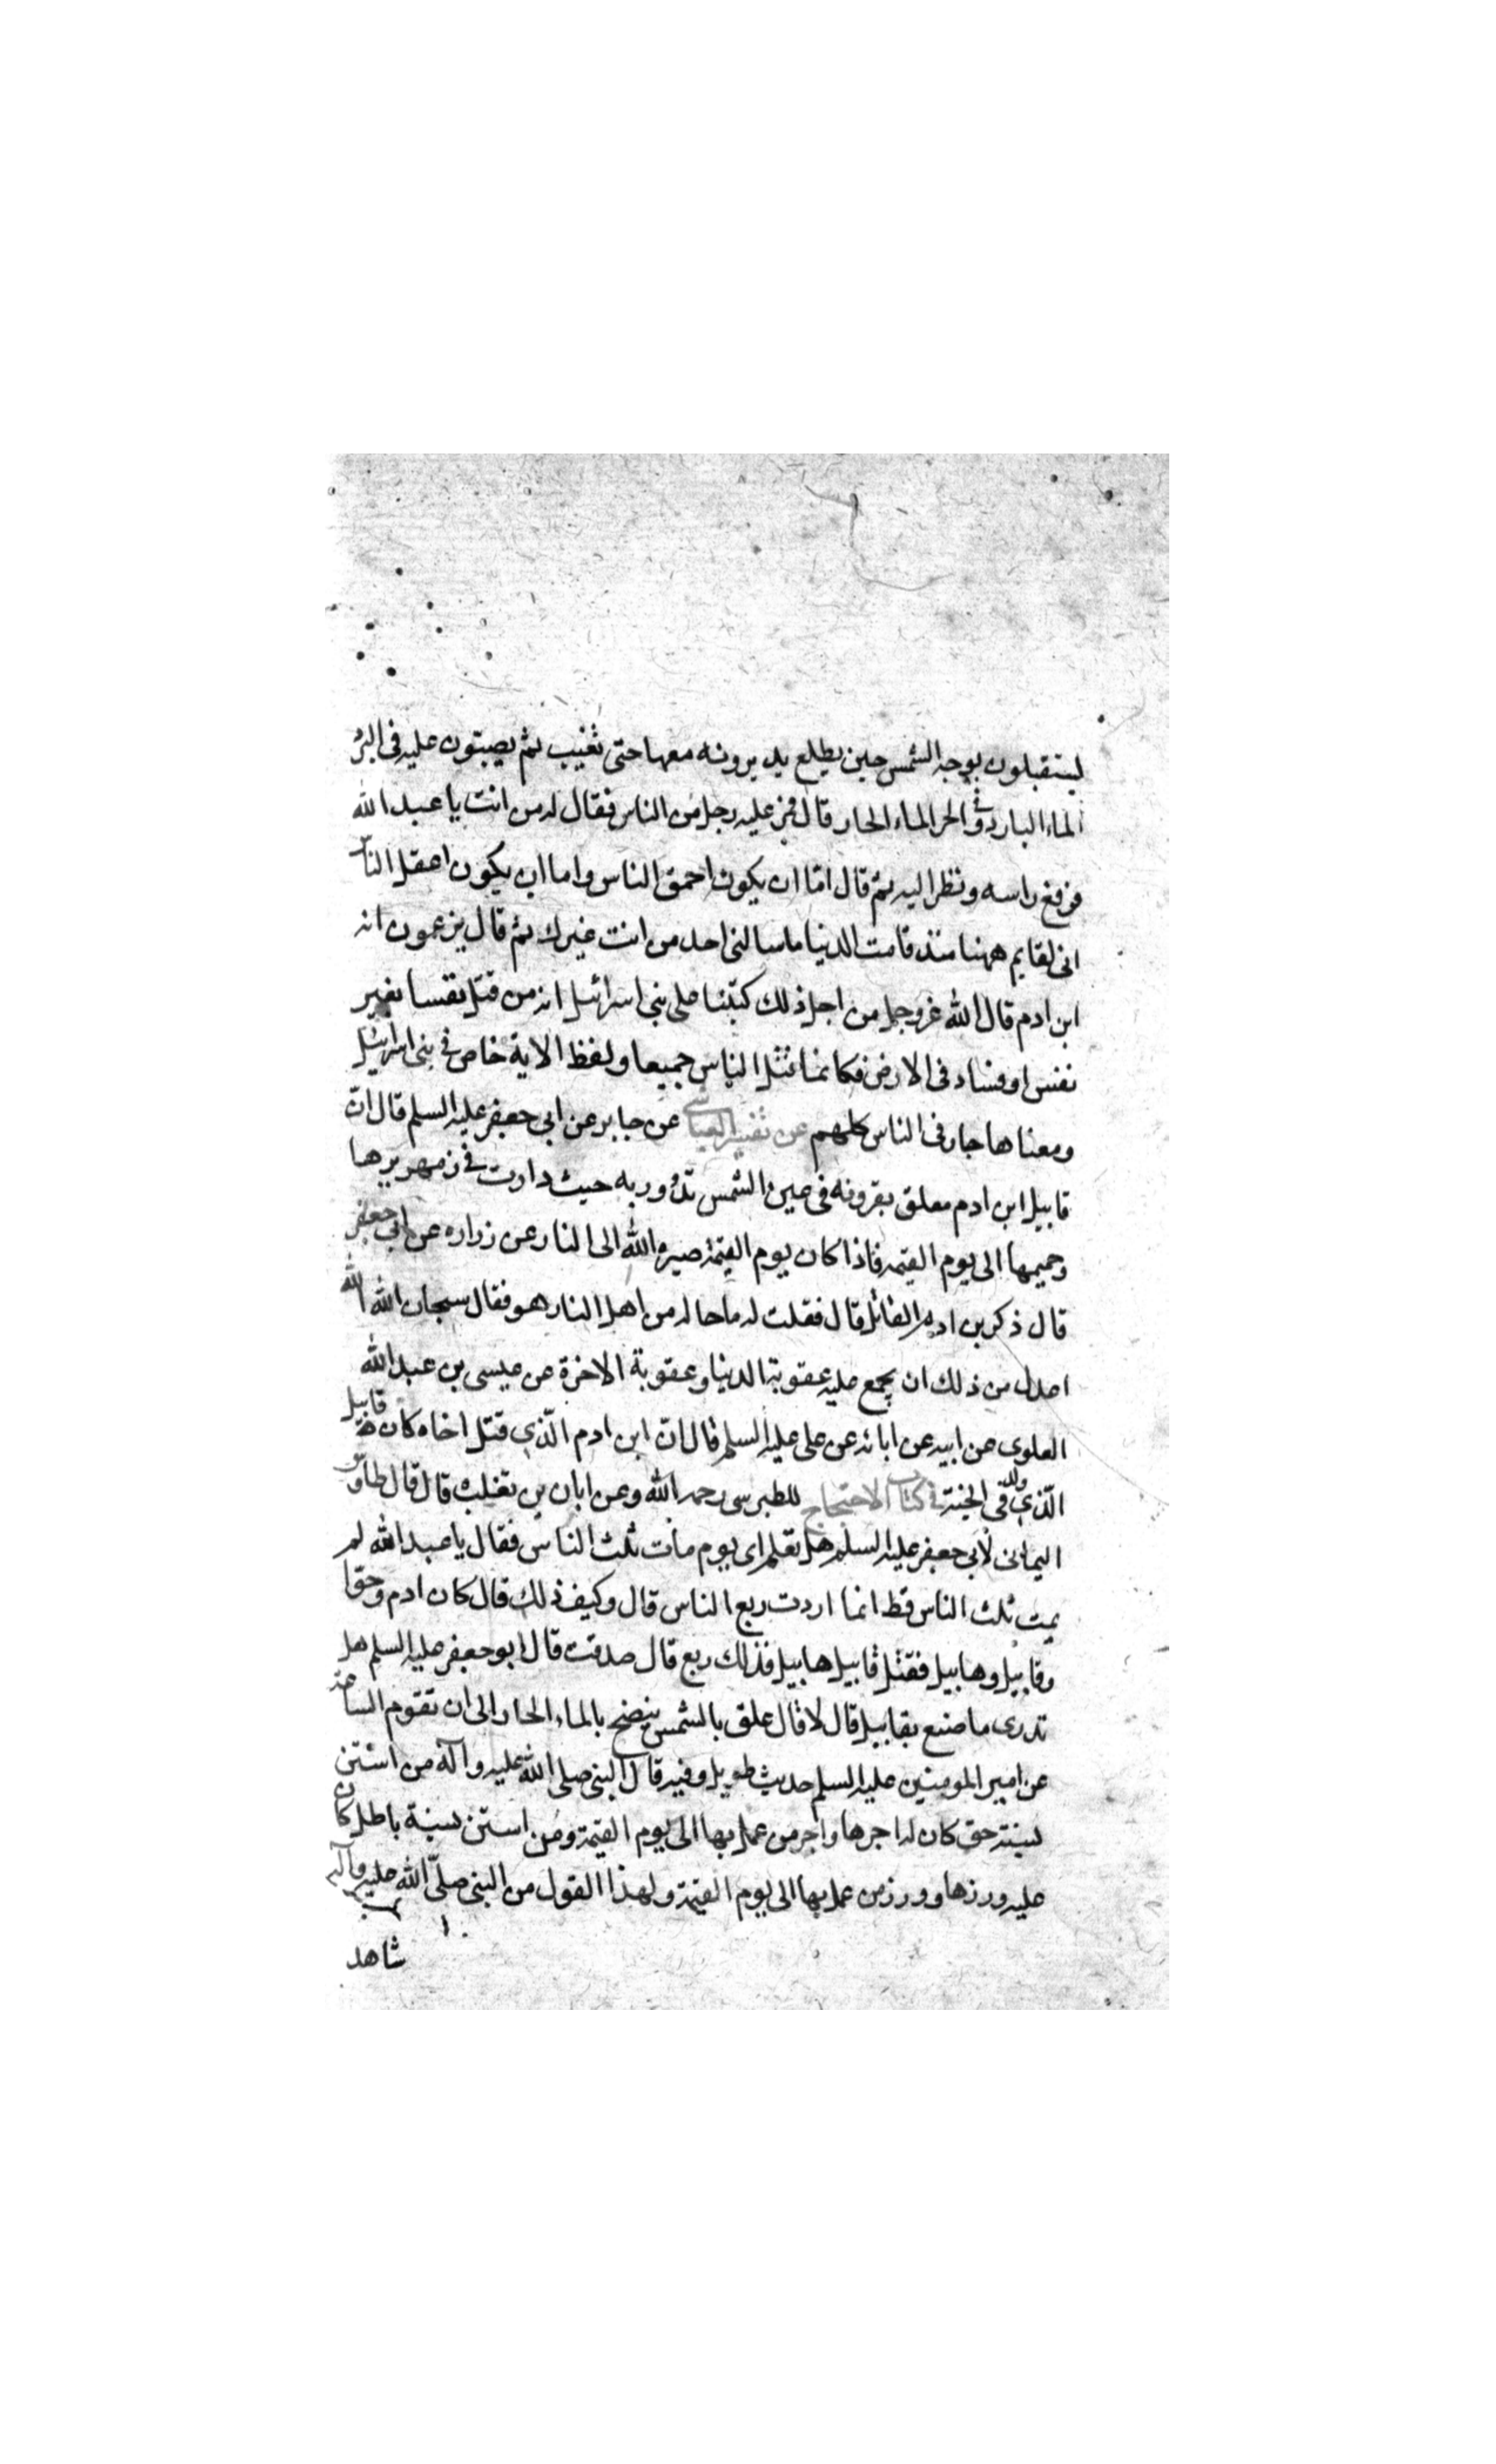 ليستقبلون بوجه الشمس حين يطلع يديرونه معها حتى تغيب ثم يصبون عليه في البرد
الماء البارد وفي الحر الماء الحار قال فمر عليه رجل من الناس فقال له من انت يا عبد الله
فرفع راسه ونظر اليه ثم قال امّا ان يكون احمق الناس واما ان يكون اعقل النّاس
انى لقايم ههنا منذ قامت الدنيا ما سالنى احد من انت غيرك ثم قال يزعمون انه
ابن ادم قال الله عز وجل من اجل ذلك كتبنا على بني اسرائيل انه من قتل نفسا بغير
نفس او فساد فى الارض فكانما قتل الناس جميعا ولفظ الاية خاص في بنى اسرائيل
ومعناها جار فى الناس كلهم عن تفسير العياشي عن جابر عن ابى جعفر عليه السلم قال انّ
قابيل ابن ادم معلق بقرونه فى عين الشمس تدور به حيث دارت في زمهريرها
وحميمها الى يوم القيمة فاذا كان يوم القيمة صيره الله الى النار عن زراره عن ابي جعفر
قال ذكر بن ادم القاتل قال فقلت له ما حاله من اهل النار هو فقال سبحان الله الله
اعدل من ذلك ان يجمع عليه عقوبة الدنيا وعقوبة الاخرة عن عيسى بن عبد الله
العلوى عن ابيه عن ابائه عن على عليه السلم قال ان ابن ادم الّذي قتل اخاه كان قابيل
الّذي ولد في الجنة في كتاب الاحتجاج للطبرسى رحمه الله وعن ابان بن تغلب قال قال طاوس
اليمانى لابي جعفر عليه السلم هل تعلم اى يوم مات ثلث الناس فقال يا عبد الله لم
يمت ثلث الناس قط انما اردت ربع الناس قال وكيف ذلك قال كان ادم وحوا
وقابيل وهابيل فقتل قابيل هابيل فذلك ربع قال صدقت قال ابو جعفر عليه السلم هل
تدرى ما صنع بقابيل قال لا قال علق بالشمس ينضح بالماء الحار الى ان تقوم الساعة
عن امير المومنين عليه السلم حديث طويل وفيه قال النبى صلى الله عليه وآله من استن
بسنة حق كان له اجرها واجر من عمل بها الى يوم القيمة ومن استن بسنة باطل كان
عليه وزرها ووزر من عمل بها الى يوم القيمة ولهذا القول من النبى صلّى الله عليه وآله
شاهد